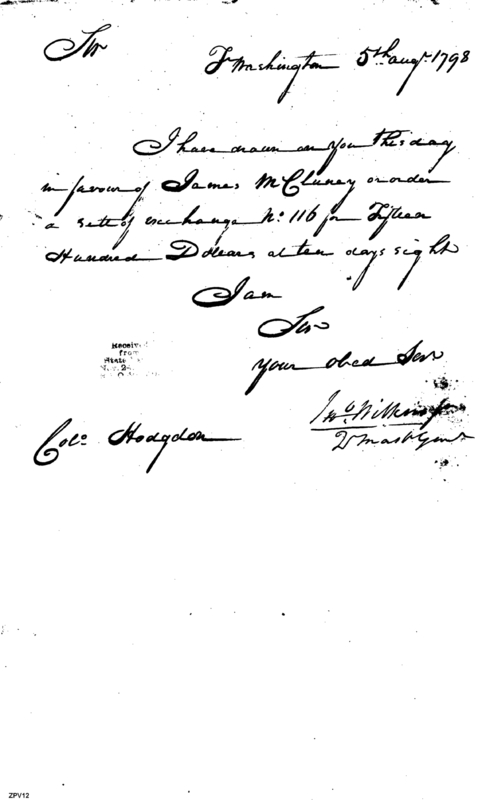 Sir
Ft Washington 5th augt. 1798
I have drawn on you this day
in favour of James McCluney or order
a sett of exchange No. 116 for Fifteen
Hundred Dollars at ten days sight
I am
Sir
your obed Serv
Jno. Wilkins jr
Qr mastr Genl
Colo. Hodgdon
Received
from
State
ZPV12